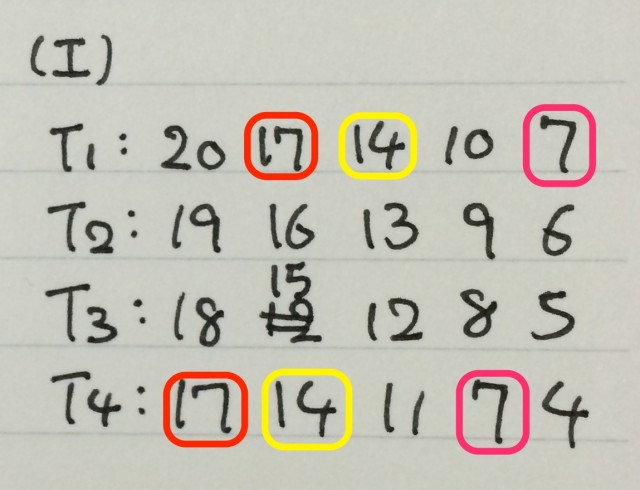 (I)
T1: 20 17 14 10 7
T2: 19 16 13 9 6
15
T3: 18 12 12 8 5
T4: 17 14 11 7 4